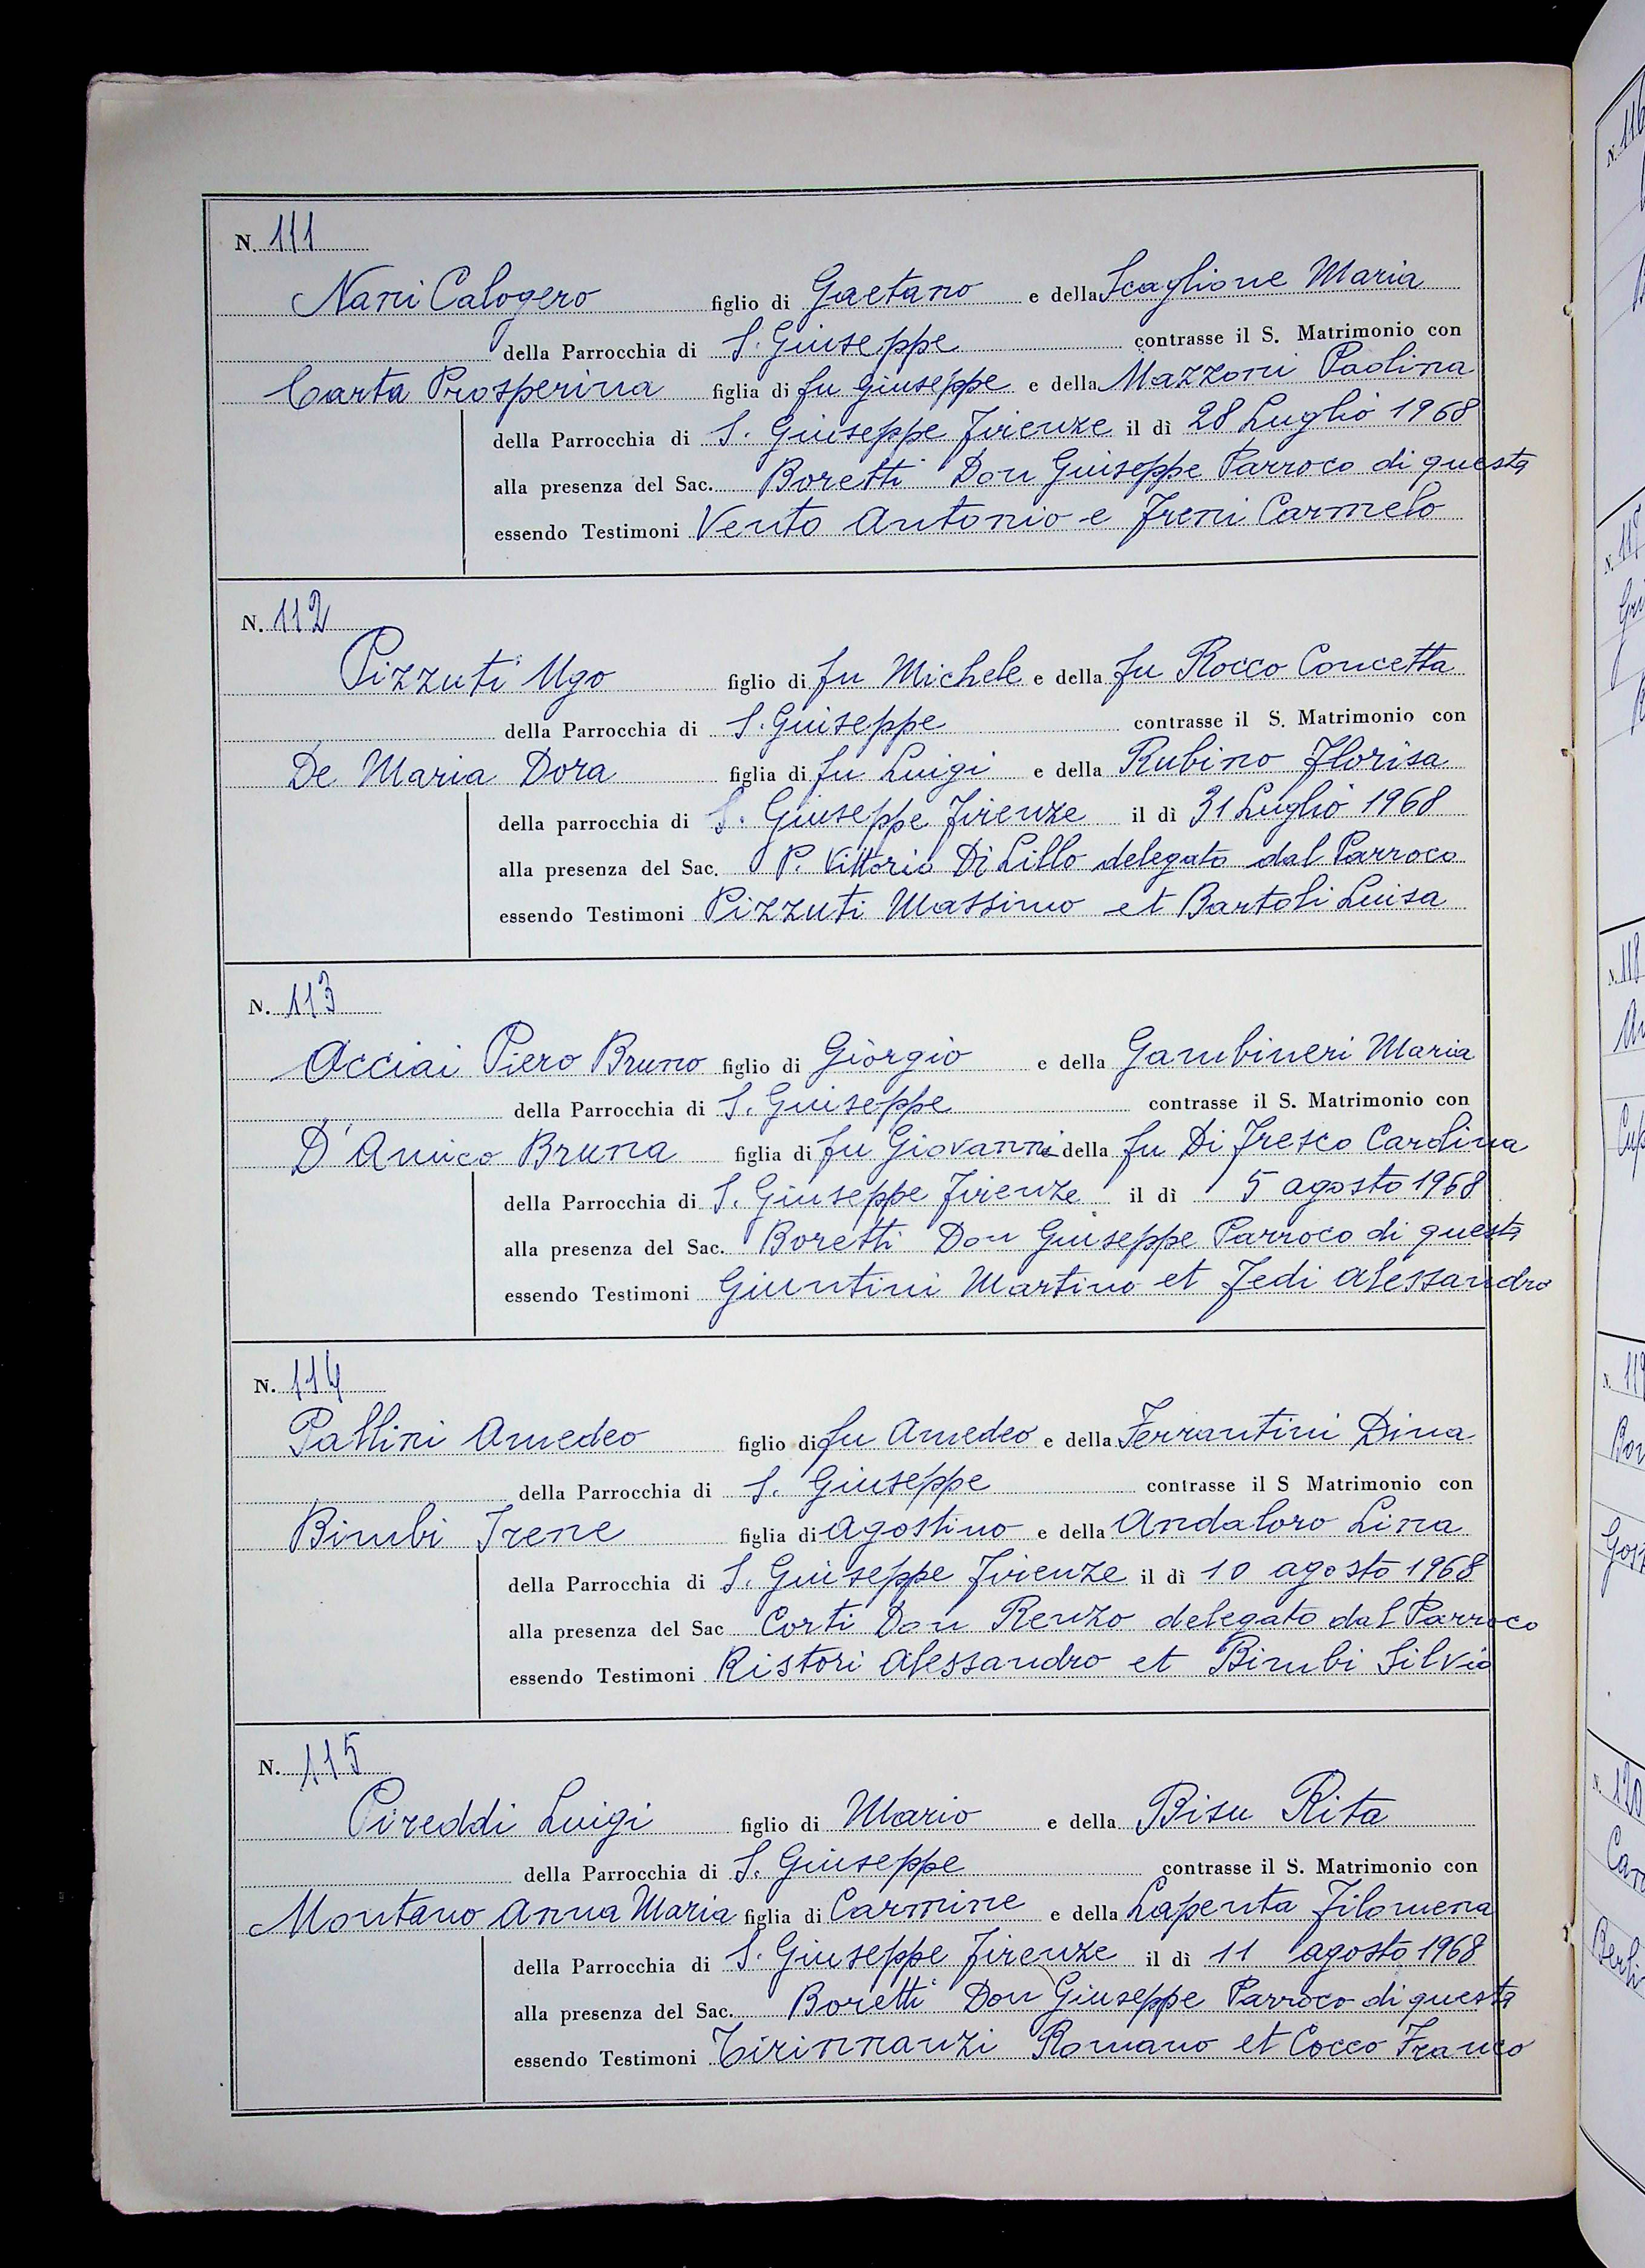 N. 111
Nani Calogero figlio di Gaetano e della Scaglione Maria
della Parrocchia di S. Giuseppe contrasse il S. Matrimonio con
Carta Prosperina figlia di fu Giuseppe e della Mazzoni Paolina
della Parrocchia di S. Giuseppe Firenze il dì 28 Luglio 1968
alla presenza del Sac. Boretti Don Giuseppe Parroco di questa
essendo Testimoni Vento Antonio e Freni Carmelo
N. 112
Pizzuti Ugo figlio di fu Michele e della fu Rocco Concetta
della Parrocchia di S. Giuseppe contrasse il S. Matrimonio con
De Maria Dora figlia di fu Luigi e della Rubino Florisa
della parrocchia di S. Giuseppe Firenze il dì 31 Luglio 1968
alla presenza del Sac. P. Vittorio Di Lillo delegato dal Parroco
essendo Testimoni Pizzuti Massimo et Bartoli Luisa
N. 113
Acciai Piero Bruno figlio di Giorgio e della Gambineri Maria
della Parrocchia di S. Giuseppe contrasse il S. Matrimonio con
D'Amico Bruna figlia di fu Giovanni e della fu Di Fresco Carolina
della Parrocchia di S. Giuseppe Firenze il dì 5 agosto 1968
alla presenza del Sac. Boretti Don Giuseppe Parroco di questa
essendo Testimoni Giuntini Martino et Fedi Alessandro
N. 114
Pallini Amedeo figlio di fu Amedeo e della Ferrantini Dina
della Parrocchia di S. Giuseppe contrasse il S Matrimonio con
Bimbi Irene figlia di Agostino e della Andaloro Lina
della Parrocchia di S. Giuseppe Firenze il dì 10 agosto 1968
alla presenza del Sac Corti Don Renzo delegato dal Parroco
essendo Testimoni Ristori Alessandro et Bimbi Silvio
N. 115
Pireddi Luigi figlio di Mario e della Bisu Rita
della Parrocchia di S. Giuseppe contrasse il S. Matrimonio con
Montano Anna Maria figlia di Carmine e della Lapenta Filomena
della Parrocchia di S. Giuseppe Firenze il dì 11 agosto 1968
alla presenza del Sac. Boretti Don Giuseppe Parroco di questa
essendo Testimoni Tirinnanzi Romano et Cocco Franco